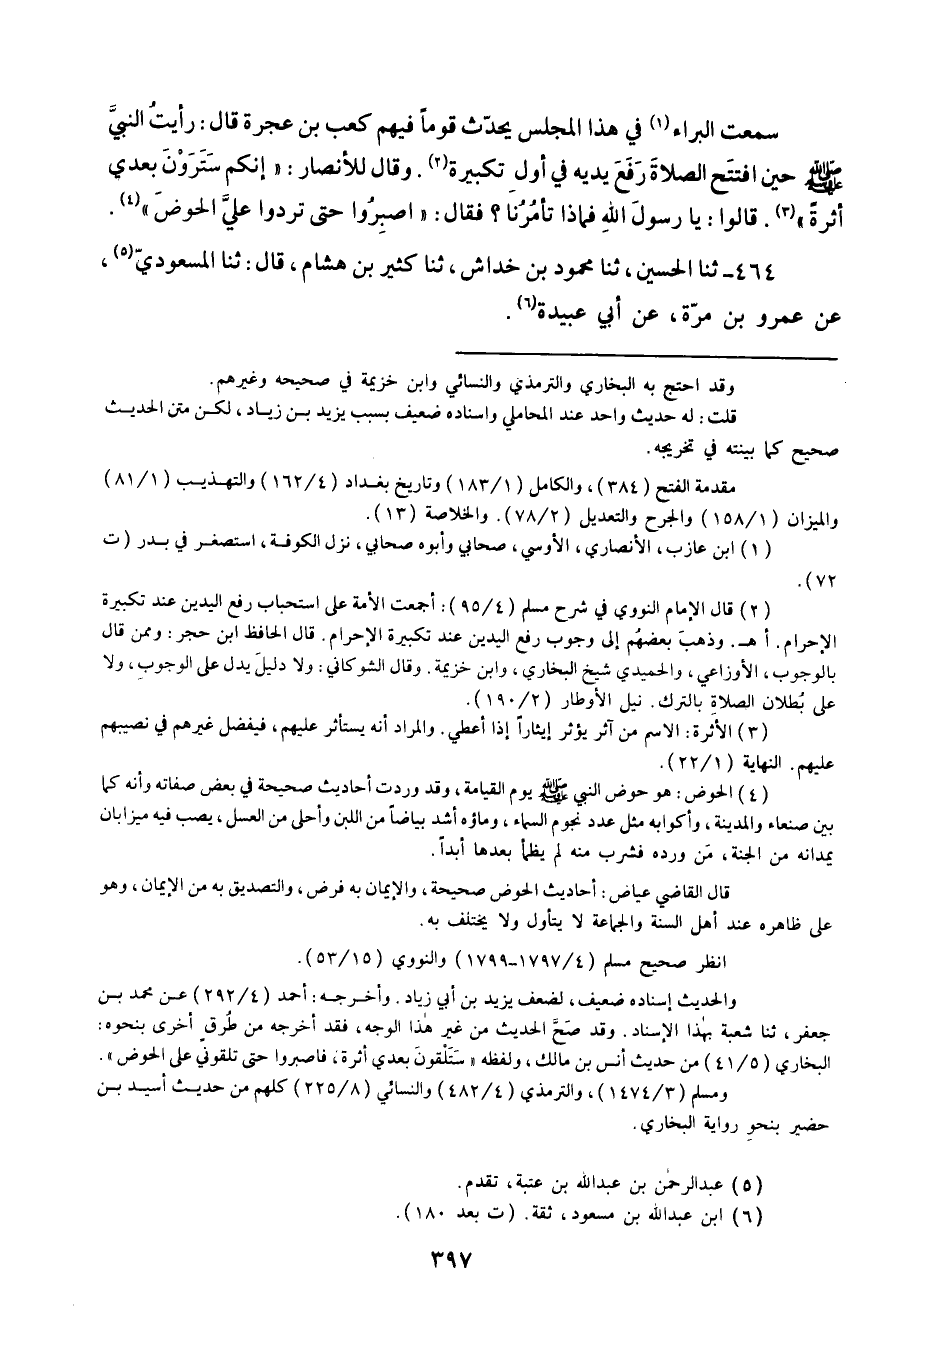 سمعت البراء(١) في هذا المجلس يحدّث قوماً فيهم كعب بن عجرة قال : رأيتُ النبيَّ
ﷺ حين افتتَح الصلاةَ رَفَعَ يديه في أولِ تكبيرة(٢) . وقال للأنصار : « إنكم سَتَرَوْنَ بعدي
أثرةً »(٣) . قالوا : يا رسولَ اللهِ فماذا تأمُرُنا ؟ فقال : « اصبِرُوا حتى تردوا عليَّ الحوضَ »(٤) .
٤٦٤ـ ثنا الحسين ، ثنا محمود بن خداش ، ثنا كثير بن هشام ، قال : ثنا المسعوديّ(٥) ،
عن عمرو بن مرّة ، عن أبي عبيدة(٦) .
وقد احتج به البخاري والترمذي والنسائي وابن خزيمة في صحيحه وغيرهم .
قلت : له حديث واحد عند المحاملي واسناده ضعيف بسبب يزيد بن زياد ، لكن متن الحديث
صحيح كما بينته في تخريجه .
مقدمة الفتح ( ٣٨٤ ) ، والكامل ( ١٨٣/١ ) وتاريخ بغداد ( ١٦٢/٤ ) والتهذيب ( ٨١/١ )
والميزان ( ١٥٨/١ ) والجرح والتعديل ( ٧٨/٢ ) . والخلاصة ( ١٣ ) .
( ١ ) ابن عازب ، الأنصاري ، الأوسي ، صحابي وأبوه صحابي ، نزل الكوفة ، استصغر في بدر ( ت
٧٢ ) .
( ٢ ) قال الإمام النووي في شرح مسلم ( ٩٥/٤ ) : أجمعت الأمة على استحباب رفع اليدين عند تكبيرة
الإحرام . أ هـ . وذهبَ بعضهُم إلى وجوب رفع اليدين عند تكبيرة الإحرام . قال الحافظ ابن حجر : وممن قال
بالوجوب ، الأوزاعي ، والحميدي شيخ البخاري ، وابن خزيمة . وقال الشوكاني : ولا دليلَ يدل على الوجوب ، ولا
على بُطلان الصلاةِ بالترك . نيل الأوطار ( ١٩٠/٢ ) .
( ٣ ) الأثرة : الاسم من آثر يؤثر إيثاراً إذا أعطي . والمراد أنه يستأثر عليهم ، فيفضل غيرهم في نصيبهم
عليهم . النهاية ( ٢٢/١ ) .
( ٤ ) الحوض : هو حوض النبي ﷺ يوم القيامة ، وقد وردت أحاديث صحيحة في بعض صفاته وأنه كما
بين صنعاء والمدينة ، وأكوابه مثل عدد نجوم السماء ، وماؤه أشد بياضاً من اللبن وأحلى من العسل ، يصب فيه ميزابان
يمدانه من الجنة ، مَن ورده فشرب منه لم يظمأ بعدها أبداً .
قال القاضي عياض : أحاديث الحوض صحيحة ، والإيمان به فرض ، والتصديق به من الإيمان ، وهو
على ظاهره عند أهل السنة والجماعة لا يتأول ولا يختلف به .
انظر صحيح مسلم ( ١٧٩٧/٤-١٧٩٩ ) والنووي ( ٥٣/١٥ ) .
والحديث إسناده ضعيف ، لضعف يزيد بن أبي زياد . وأخرجه : أحمد ( ٢٩٢/٤ ) عن محمد بن
جعفر ، ثنا شعبة بهٰذا الإسناد . وقد صَحَّ الحديث من غير هٰذا الوجه ، فقد أخرجه من طُرقٍ أخرى بنحوه :
البخاري ( ٤١/٥ ) من حديث أنس بن مالك ، ولفظه « سَتَلْقونَ بعدي أثرة ، فاصبروا حتى تلقوني على الحوض » .
ومسلم ( ١٤٧٤/٣ ) ، والترمذي ( ٤٨٢/٤ ) والنسائي ( ٢٢٥/٨ ) كلهم من حديث أسيد بن
حضير بنحوِ رواية البخاري .
( ٥ ) عبدالرحمٰن بن عبدالله بن عتبة ، تقدم .
( ٦ ) ابن عبدالله بن مسعود ، ثقة . ( ت بعد ١٨٠ ) .
٣٩٧